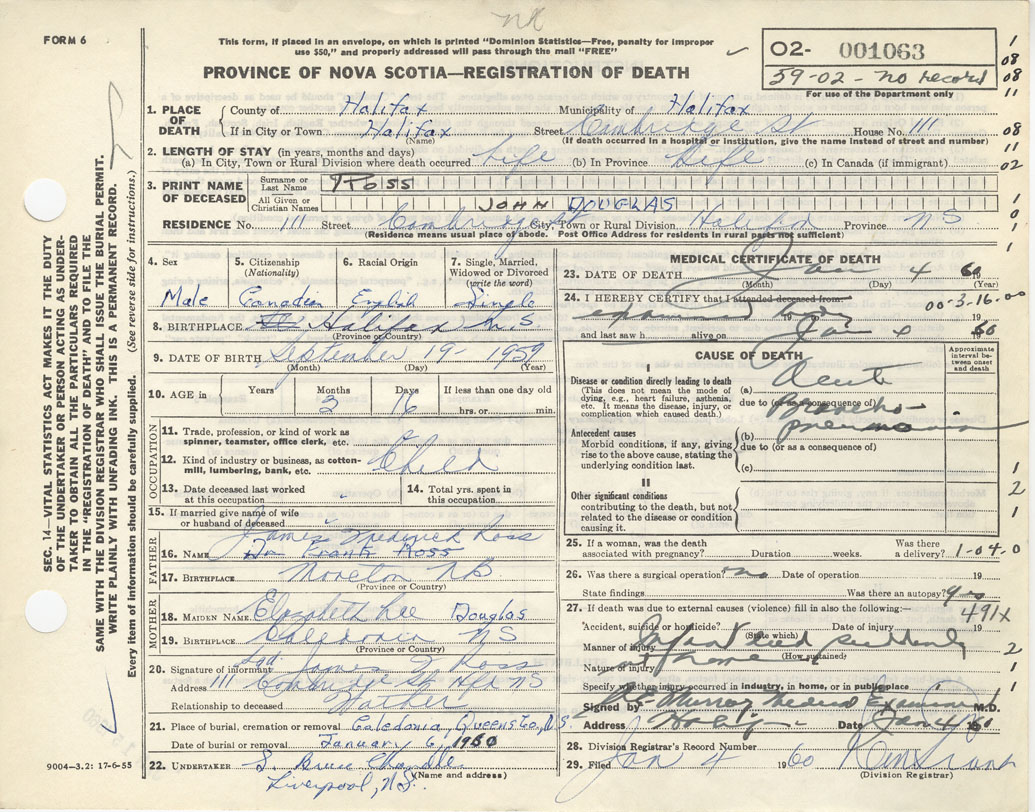 nR
FORM 6
This form, if placed in an envelope, on which is printed "Dominion Statistics—Free, penalty for improper
use $50," and properly addressed will pass through the mail "FREE"
02- 001063
59-02 - no record
For use of the Department only
PROVINCE OF NOVA SCOTIA—REGISTRATION OF DEATH
1. PLACE OF DEATH
County of Halifax Municipality of Halifax
If in City or Town Halifax Street Cambridge St House No. 111
(Name) (If death occurred in a hospital or institution, give the name instead of street and number)
2. LENGTH OF STAY (in years, months and days)
(a) In City, Town or Rural Division where death occurred Life (b) In Province Life (c) In Canada (if immigrant)
3. PRINT NAME OF DECEASED
Surname or Last Name ROSS
All Given or Christian Names JOHN DOUGLAS
RESIDENCE No. 111 Street Cambridge St City, Town or Rural Division Halifax Province NS
(Residence means usual place of abode. Post Office Address for residents in rural parts not sufficient)
4. Sex
Male
5. Citizenship
(Nationality)
Canadian
6. Racial Origin
English
7. Single, Married, Widowed or Divorced
(write the word)
Single
8. BIRTHPLACE Halifax N.S
(Province or Country)
9. DATE OF BIRTH September 19 - 1959
(Month) (Day) (Year)
10. AGE in
Years Months Days If less than one day old
3 16 hrs. or min.
OCCUPATION
11. Trade, profession, or kind of work as
spinner, teamster, office clerk, etc.
12. Kind of industry or business, as cotton-
mill, lumbering, bank, etc. Child
13. Date deceased last worked
at this occupation
14. Total yrs. spent in
this occupation
15. If married give name of wife
or husband of deceased
FATHER
James Frederick Ross
16. NAME Dr Frank Ross
17. BIRTHPLACE Moncton NB
(Province or Country)
MOTHER
18. MAIDEN NAME Elizabeth Lee Douglas
19. BIRTHPLACE Caledonia NS
(Province or Country)
20. Signature of informant Sgd. James F Ross
Address 111 Cambridge St Hfx NS
Relationship to deceased Father
21. Place of burial, cremation or removal Caledonia, Queens Co, N.S.
Date of burial or removal January 6, 1960
22. UNDERTAKER S. Bruce Chandler
(Name and address)
Liverpool, N.S.
9004-3.2: 17-6-55
MEDICAL CERTIFICATE OF DEATH
23. DATE OF DEATH Jan 4 1960
(Month) (Day) (Year)
24. I HEREBY CERTIFY that I attended deceased from: 00-3-16-00
examined body 19
and last saw h alive on Jan 4 1960
CAUSE OF DEATH
Approximate interval between onset and death
I
Disease or condition directly leading to death
(This does not mean the mode of
dying, e.g., heart failure, asthenia,
etc. It means the disease, injury, or
complication which caused death.)
(a) Acute
due to (or as a consequence of)
Broncho-
pneumonia
Antecedent causes
Morbid conditions, if any, giving
rise to the above cause, stating the
underlying condition last.
(b)
due to (or as a consequence of)
(c)
II
Other significant conditions
contributing to the death, but not
related to the disease or condition
causing it.
25. If a woman, was the death
associated with pregnancy? Duration weeks. Was there a delivery? 1-04-0
26. Was there a surgical operation? no Date of operation 19
State findings Was there an autopsy? no
27. If death was due to external causes (violence) fill in also the following:—
491X
Accident, suicide or homicide? Date of injury 19
(State which)
Manner of injury Infant died suddenly
(How sustained)
at home
Nature of injury
Specify whether injury occurred in industry, in home, or in public place
Signed by Murray Medical Examiner M.D.
Address Halifax Date Jan 4 1960
28. Division Registrar's Record Number
29. Filed Jan 4 1960
(Division Registrar)
SEC. 14—VITAL STATISTICS ACT MAKES IT THE DUTY
OF THE UNDERTAKER OR PERSON ACTING AS UNDER-
TAKER TO OBTAIN ALL THE PARTICULARS REQUIRED
IN THE "REGISTRATION OF DEATH" AND TO FILE THE
SAME WITH THE DIVISION REGISTRAR WHO SHALL ISSUE THE BURIAL PERMIT.
WRITE PLAINLY WITH UNFADING INK. THIS IS A PERMANENT RECORD.
Every item of information should be carefully supplied. (See reverse side for instructions.)
1
08
08
11
08
11
02
1
0
1
1
1
2
1
2
1
1